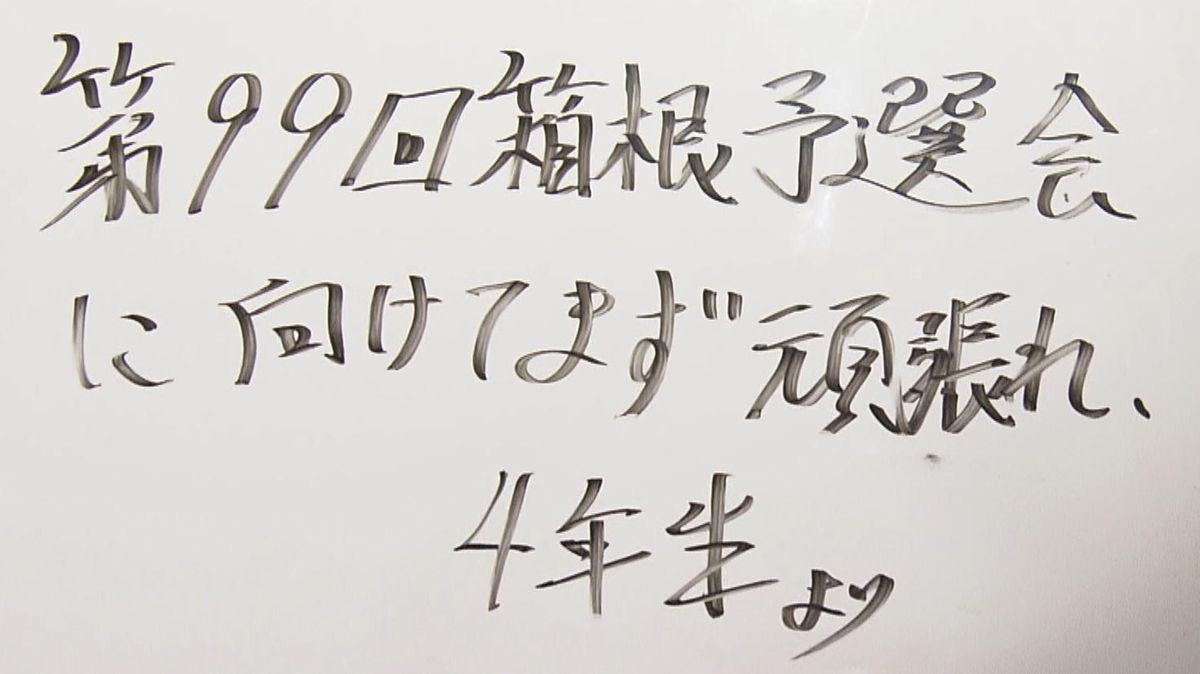 第99回箱根予選会
に向けてまず頑張れ、
4年生より